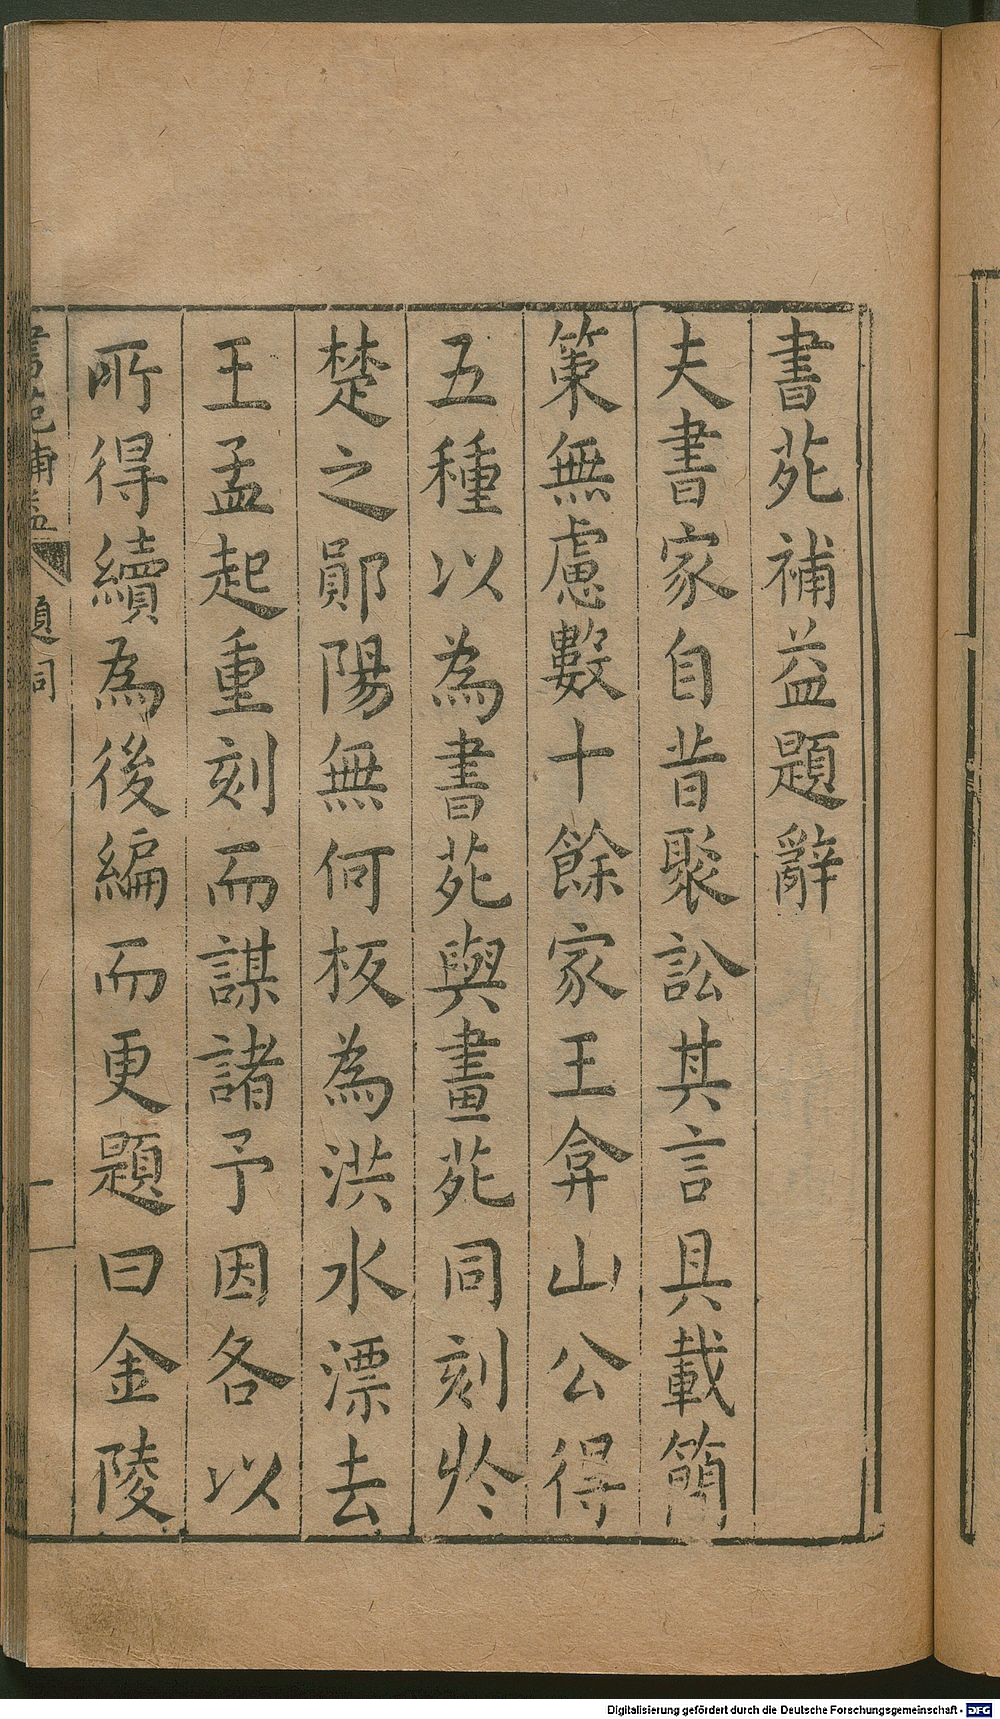 書苑補益題辭
夫書家自昔聚訟其言具載簡
策無慮數十餘家王弇山公得
五種以為書苑與畫苑同刻扵
楚之鄖陽無何板為洪水漂去
王孟起重刻而謀諸予因各以
所得續為後編而更題曰金陵
書苑補益 題詞 一
Digitalisierung gefördert durch die Deutsche Forschungsgemeinschaft - DFG